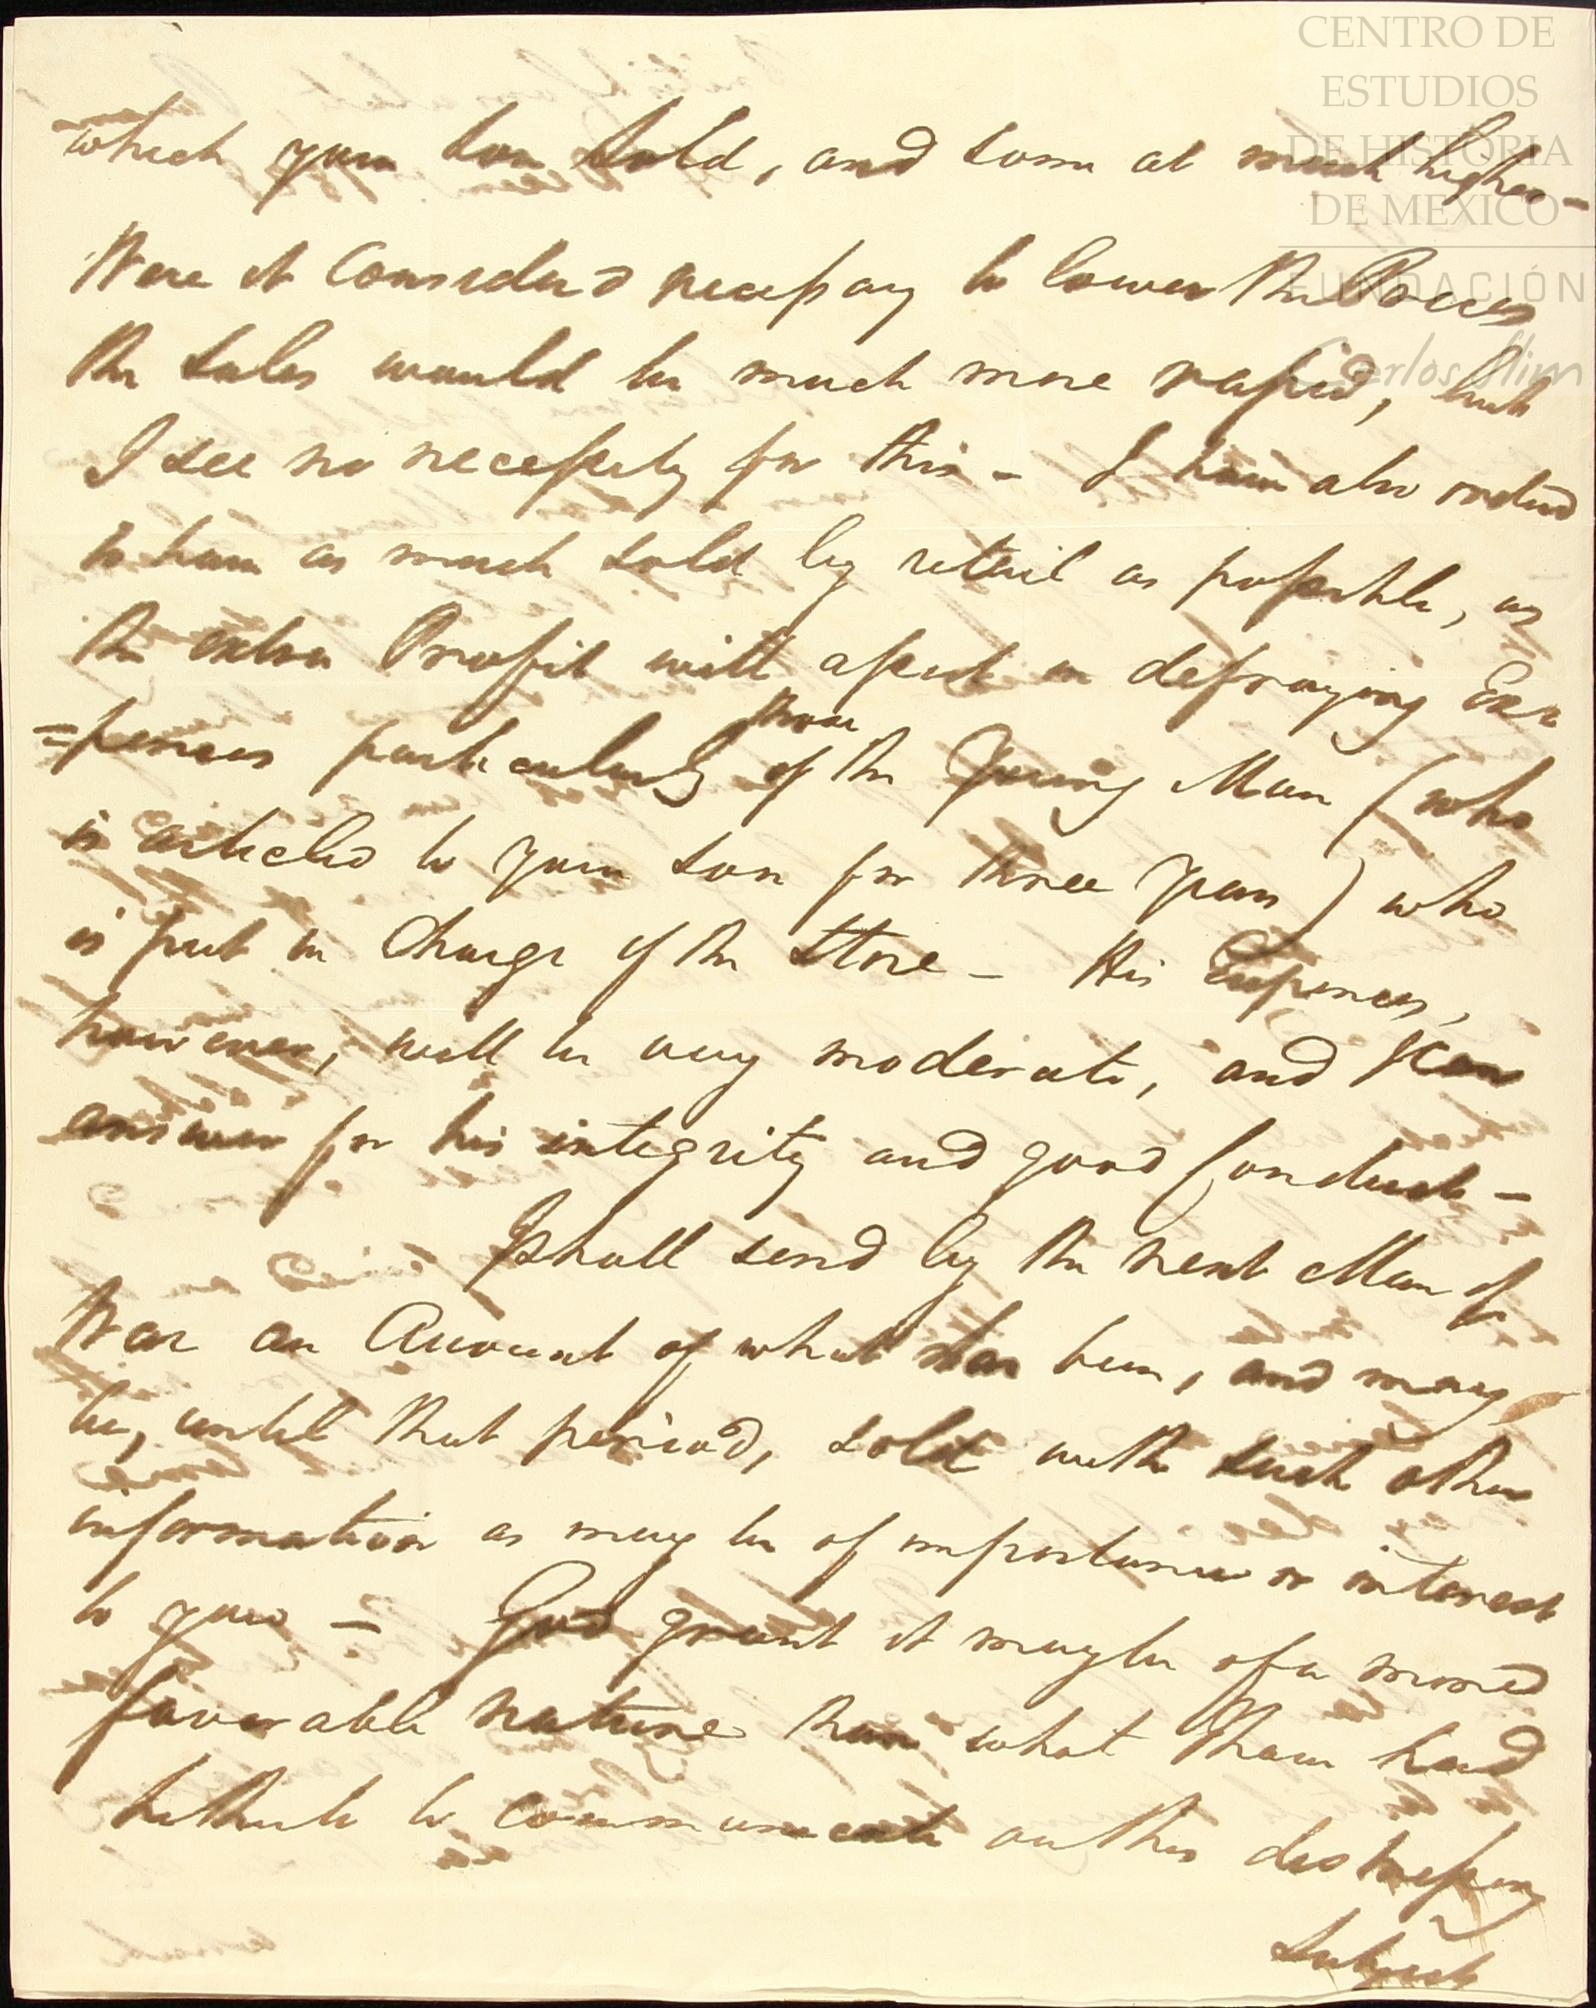 CENTRO DE
ESTUDIOS
DE HISTORIA
DE MEXICO
FUNDACIÓN
Carlos Slim
which your son sold, and some at much higher –
Were it Considerd necessary to lower the Prices
the sales would be much more rapid, but
I see no necessity for this – I have also orderd
to have as much sold by retail as possible, as
the extra Profit will assist in defraying Ex=
=pences particularly those of the Young Man (who
is articled to your son for three years) who
is put in Charge of the Store – His Expences,
however, will be very moderate, and I can
answer for his integrity and good Conduct –
I shall send by the next Man of
War an Account of what has been, and may
be, until that period, sold with such other
information as may be of importance or interest
to you – God grant it may be of a more
favorable nature than what I have had
hitherto to communicate on this distressing
subject